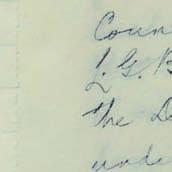 Coun
L. G. B
the D
unde